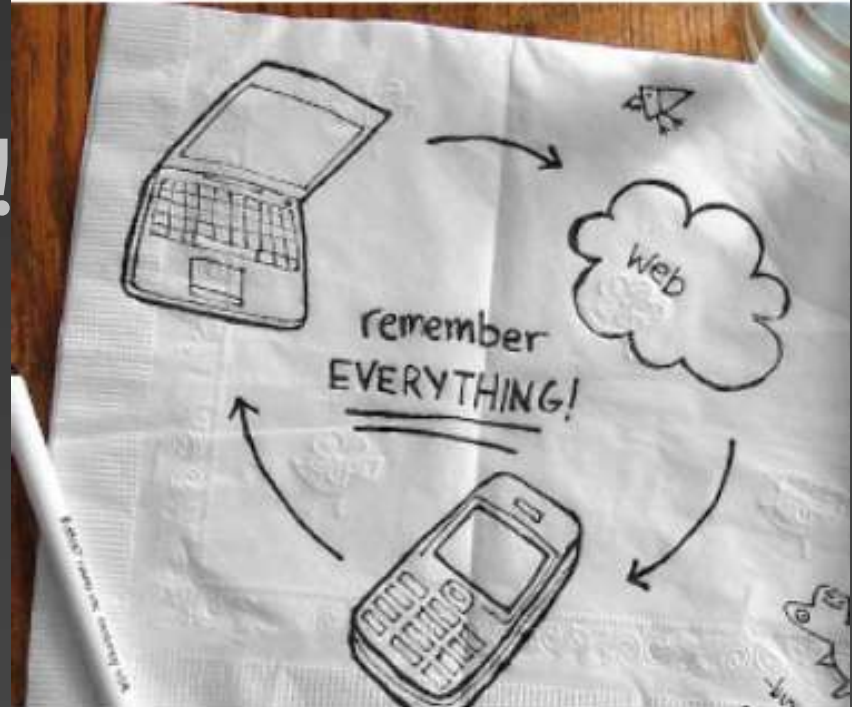 !
web
remember
EVERYTHING!